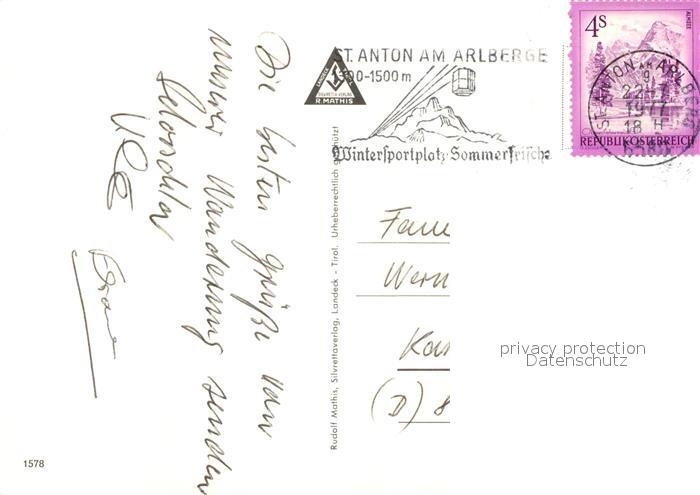 Die besten Grüße von
unserer Wanderung senden
ST. ANTON AM ARLBERGE
1300-1500 m
Wintersportplatz-Sommerfrische
LANDECK
SILVRETTA-VERLAG
R. MATHIS
4s
ALMSEE
REPUBLIK ÖSTERREICH
ST. ANTON AM ARLBERG
22-7
1977
18 H
Rudolf Mathis, Silvrettaverlag, Landeck - Tirol. Urheberrechtlich geschützt
Fam
Wern
Kas
(D) 8
privacy protection
Datenschutz
1578